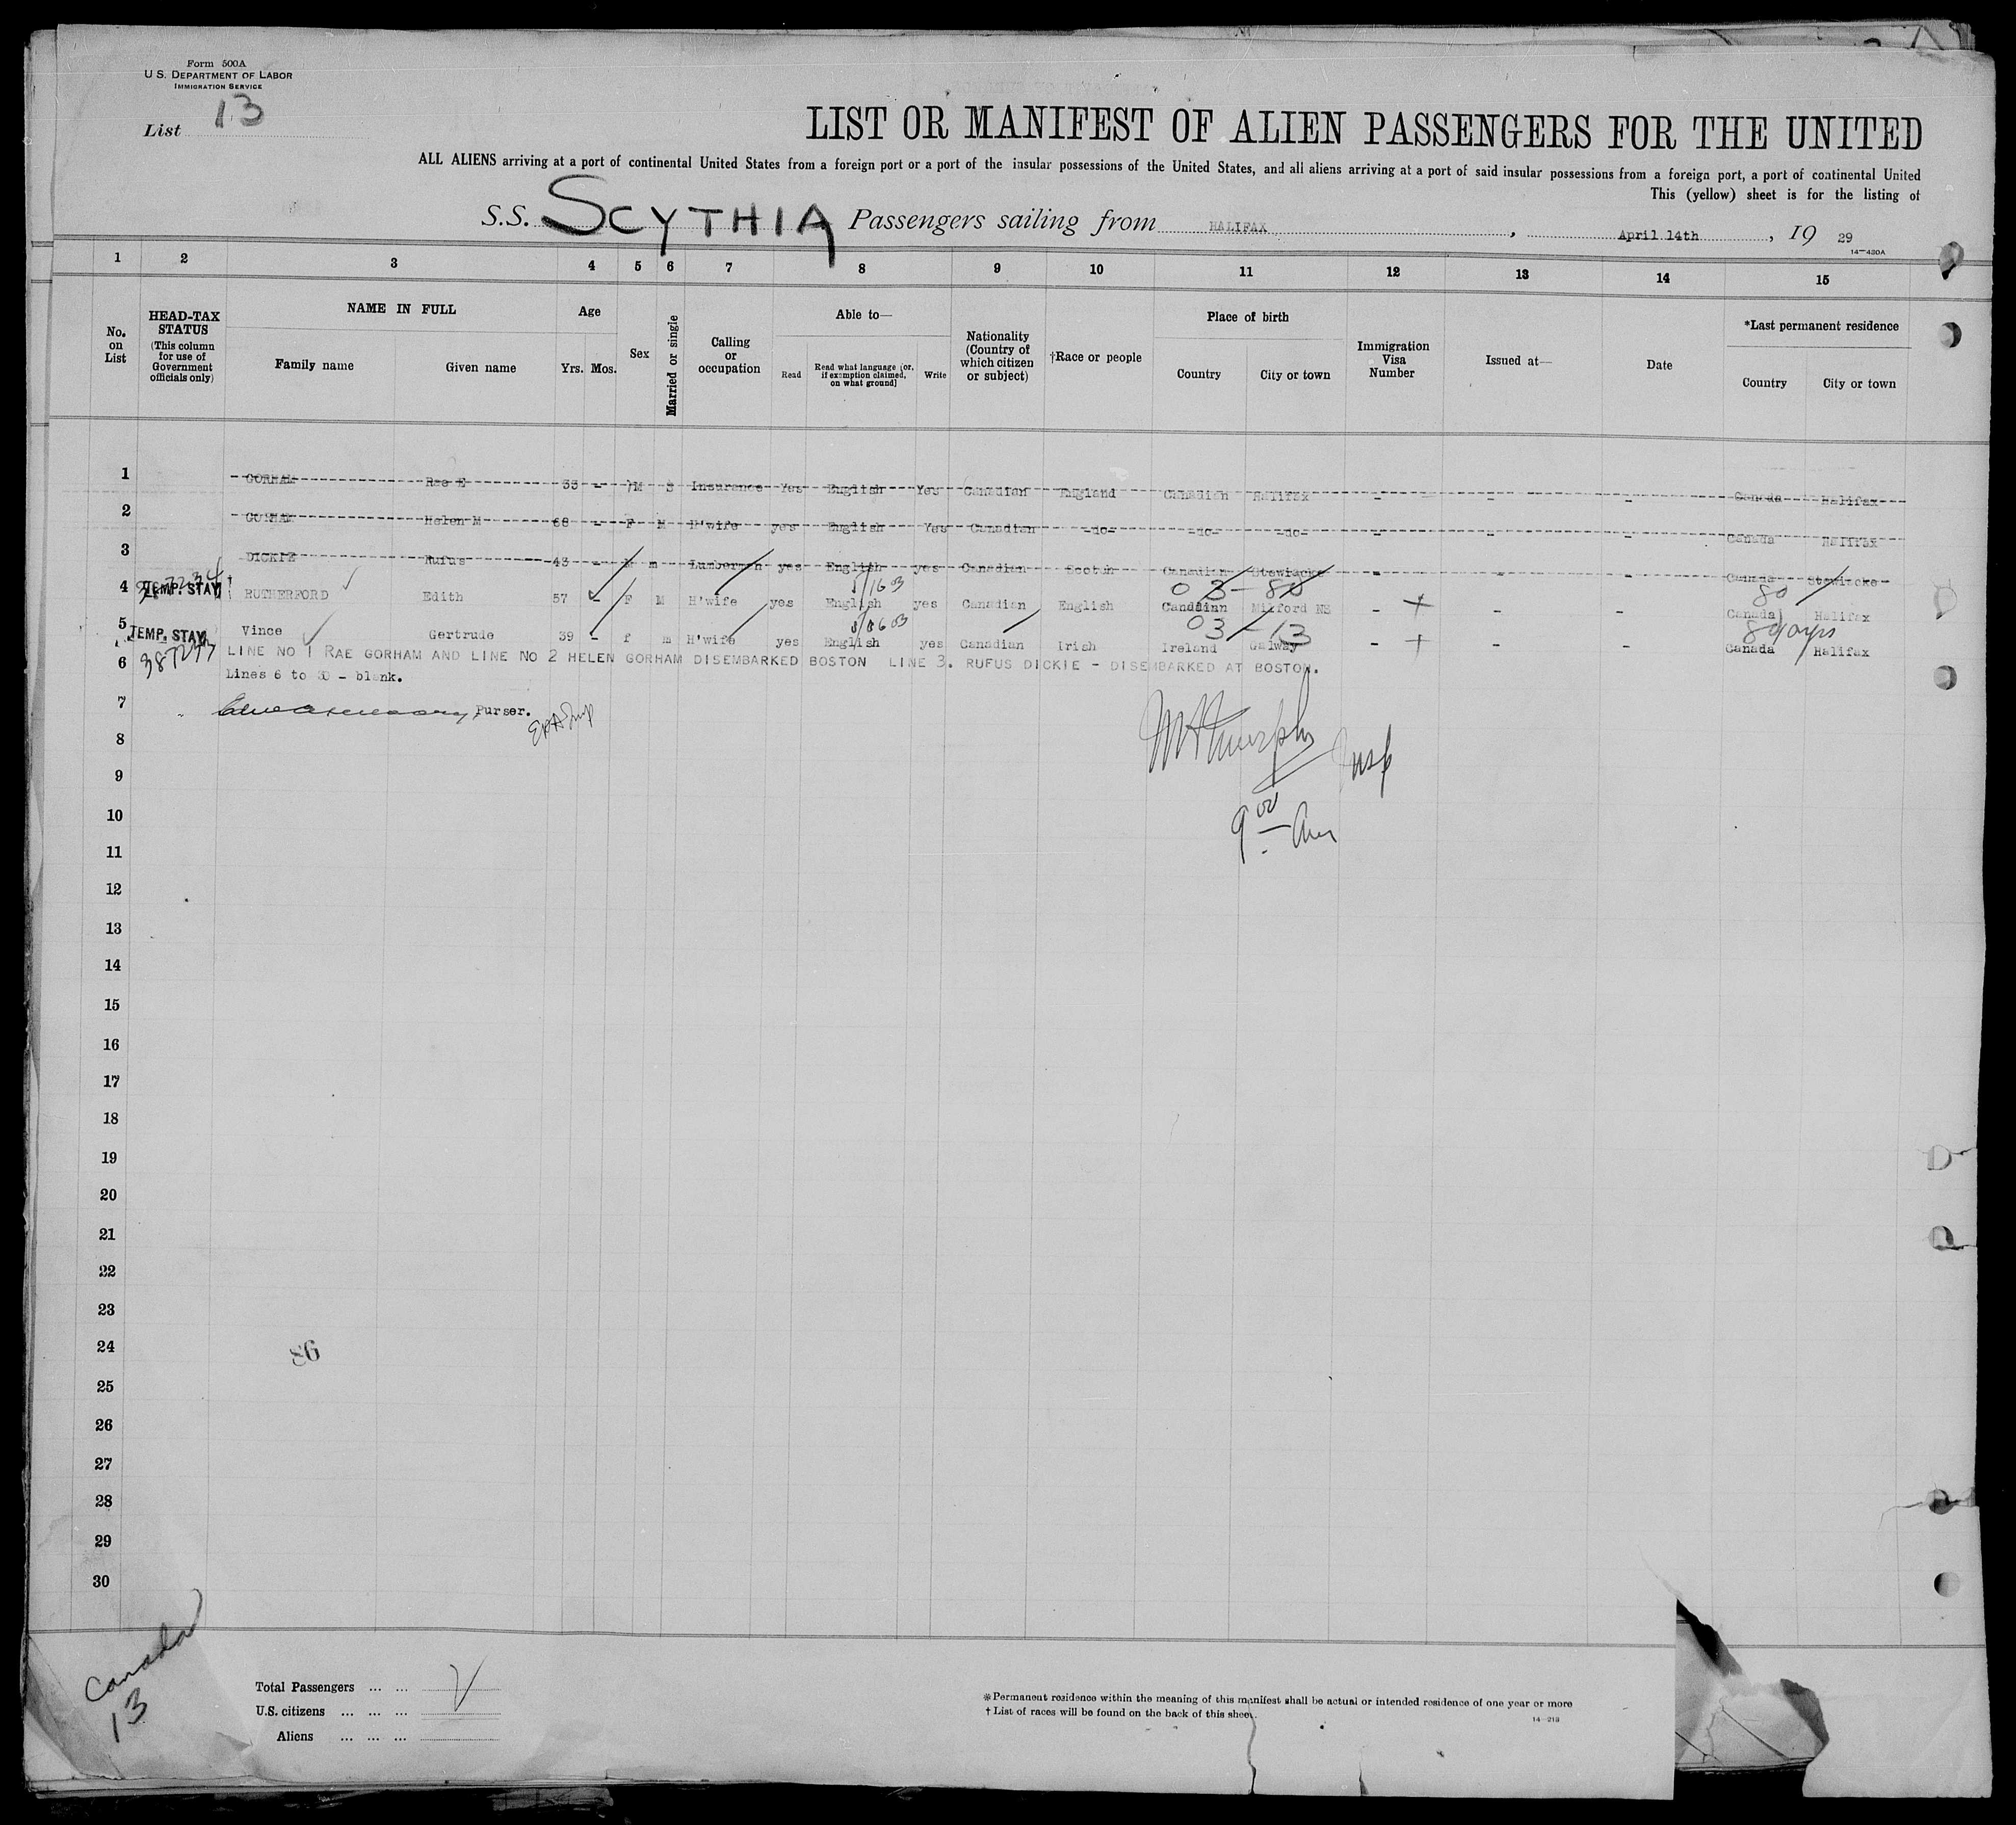 Form 500A
U S. DEPARTMENT OF LABOR
IMMIGRATION SERVICE
List 13
LIST OR MANIFEST OF ALIEN PASSENGERS FOR THE UNITED
ALL ALIENS arriving at a port of continental United States from a foreign port or a port of the insular possessions of the United States, and all aliens arriving at a port of said insular possessions from a foreign port, a port of continental United
This (yellow) sheet is for the listing of
S.S. SCYTHIA Passengers sailing from HALIFAX, April 14th, 19 29
14-430A
1 2 3 4 5 6 7 8 9 10 11 12 13 14 15
No. on List
HEAD-TAX STATUS (This column for use of Government officials only)
NAME IN FULL
Family name Given name
Age
Yrs. Mos.
Sex
Married or single
Calling or occupation
Able to—
Read Read what language [or, if exemption claimed, on what ground] Write
Nationality (Country of which citizen or subject)
†Race or people
Place of birth
Country City or town
Immigration Visa Number
Issued at—
Date
*Last permanent residence
Country City or town
1 GORHAM Rae E 33 - M S Insurance Yes English Yes Canadian England Canadian Halifax - - - Canada Halifax
2 GORHAM Helen M 68 - F M H'wife yes English Yes Canadian -do- -do- -do- - - - Canada Halifax
3 DICKIE Rufus 43 - M m Lumberman yes English yes Canadian Scotch Canadian Stewiacke - - - Canada Stewiacke
5/1603 03-80 80
4 TEMP. STAY RUTHERFORD Edith 57 - F M H'wife yes English yes Canadian English Canadian Milford NS - - - Canada Halifax
03-13
5 TEMP. STAY Vince Gertrude 39 - f m H'wife yes English yes Canadian Irish Ireland Galway - - - Canada Halifax
6 LINE NO 1 RAE GORHAM AND LINE NO 2 HELEN GORHAM DISEMBARKED BOSTON LINE 3. RUFUS DICKIE - DISEMBARKED AT BOSTON.
Lines 6 to 30 - blank.
7 Purser.
8
9
10
11
12
13
14
15
16
17
18
19
20
21
22
23
24
25
26
27
28
29
30
9 00 Am
Canada
13
Total Passengers ... ...
U.S. citizens ... ... ...
Aliens ... ... ...
*Permanent residence within the meaning of this manifest shall be actual or intended residence of one year or more
† List of races will be found on the back of this sheet.
14-213